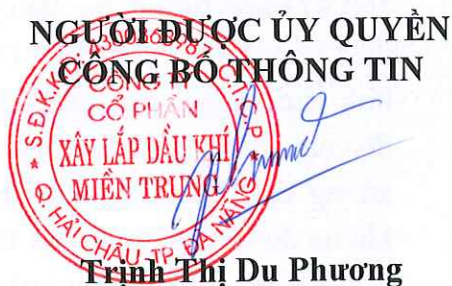 NGƯỜI ĐƯỢC ỦY QUYỀN
CÔNG BỐ THÔNG TIN
CÔNG TY
CỔ PHẦN
XÂY LẮP DẦU KHÍ
MIỀN TRUNG
Q. HẢI CHÂU TP. ĐÀ NẴNG
Trịnh Thị Du Phương